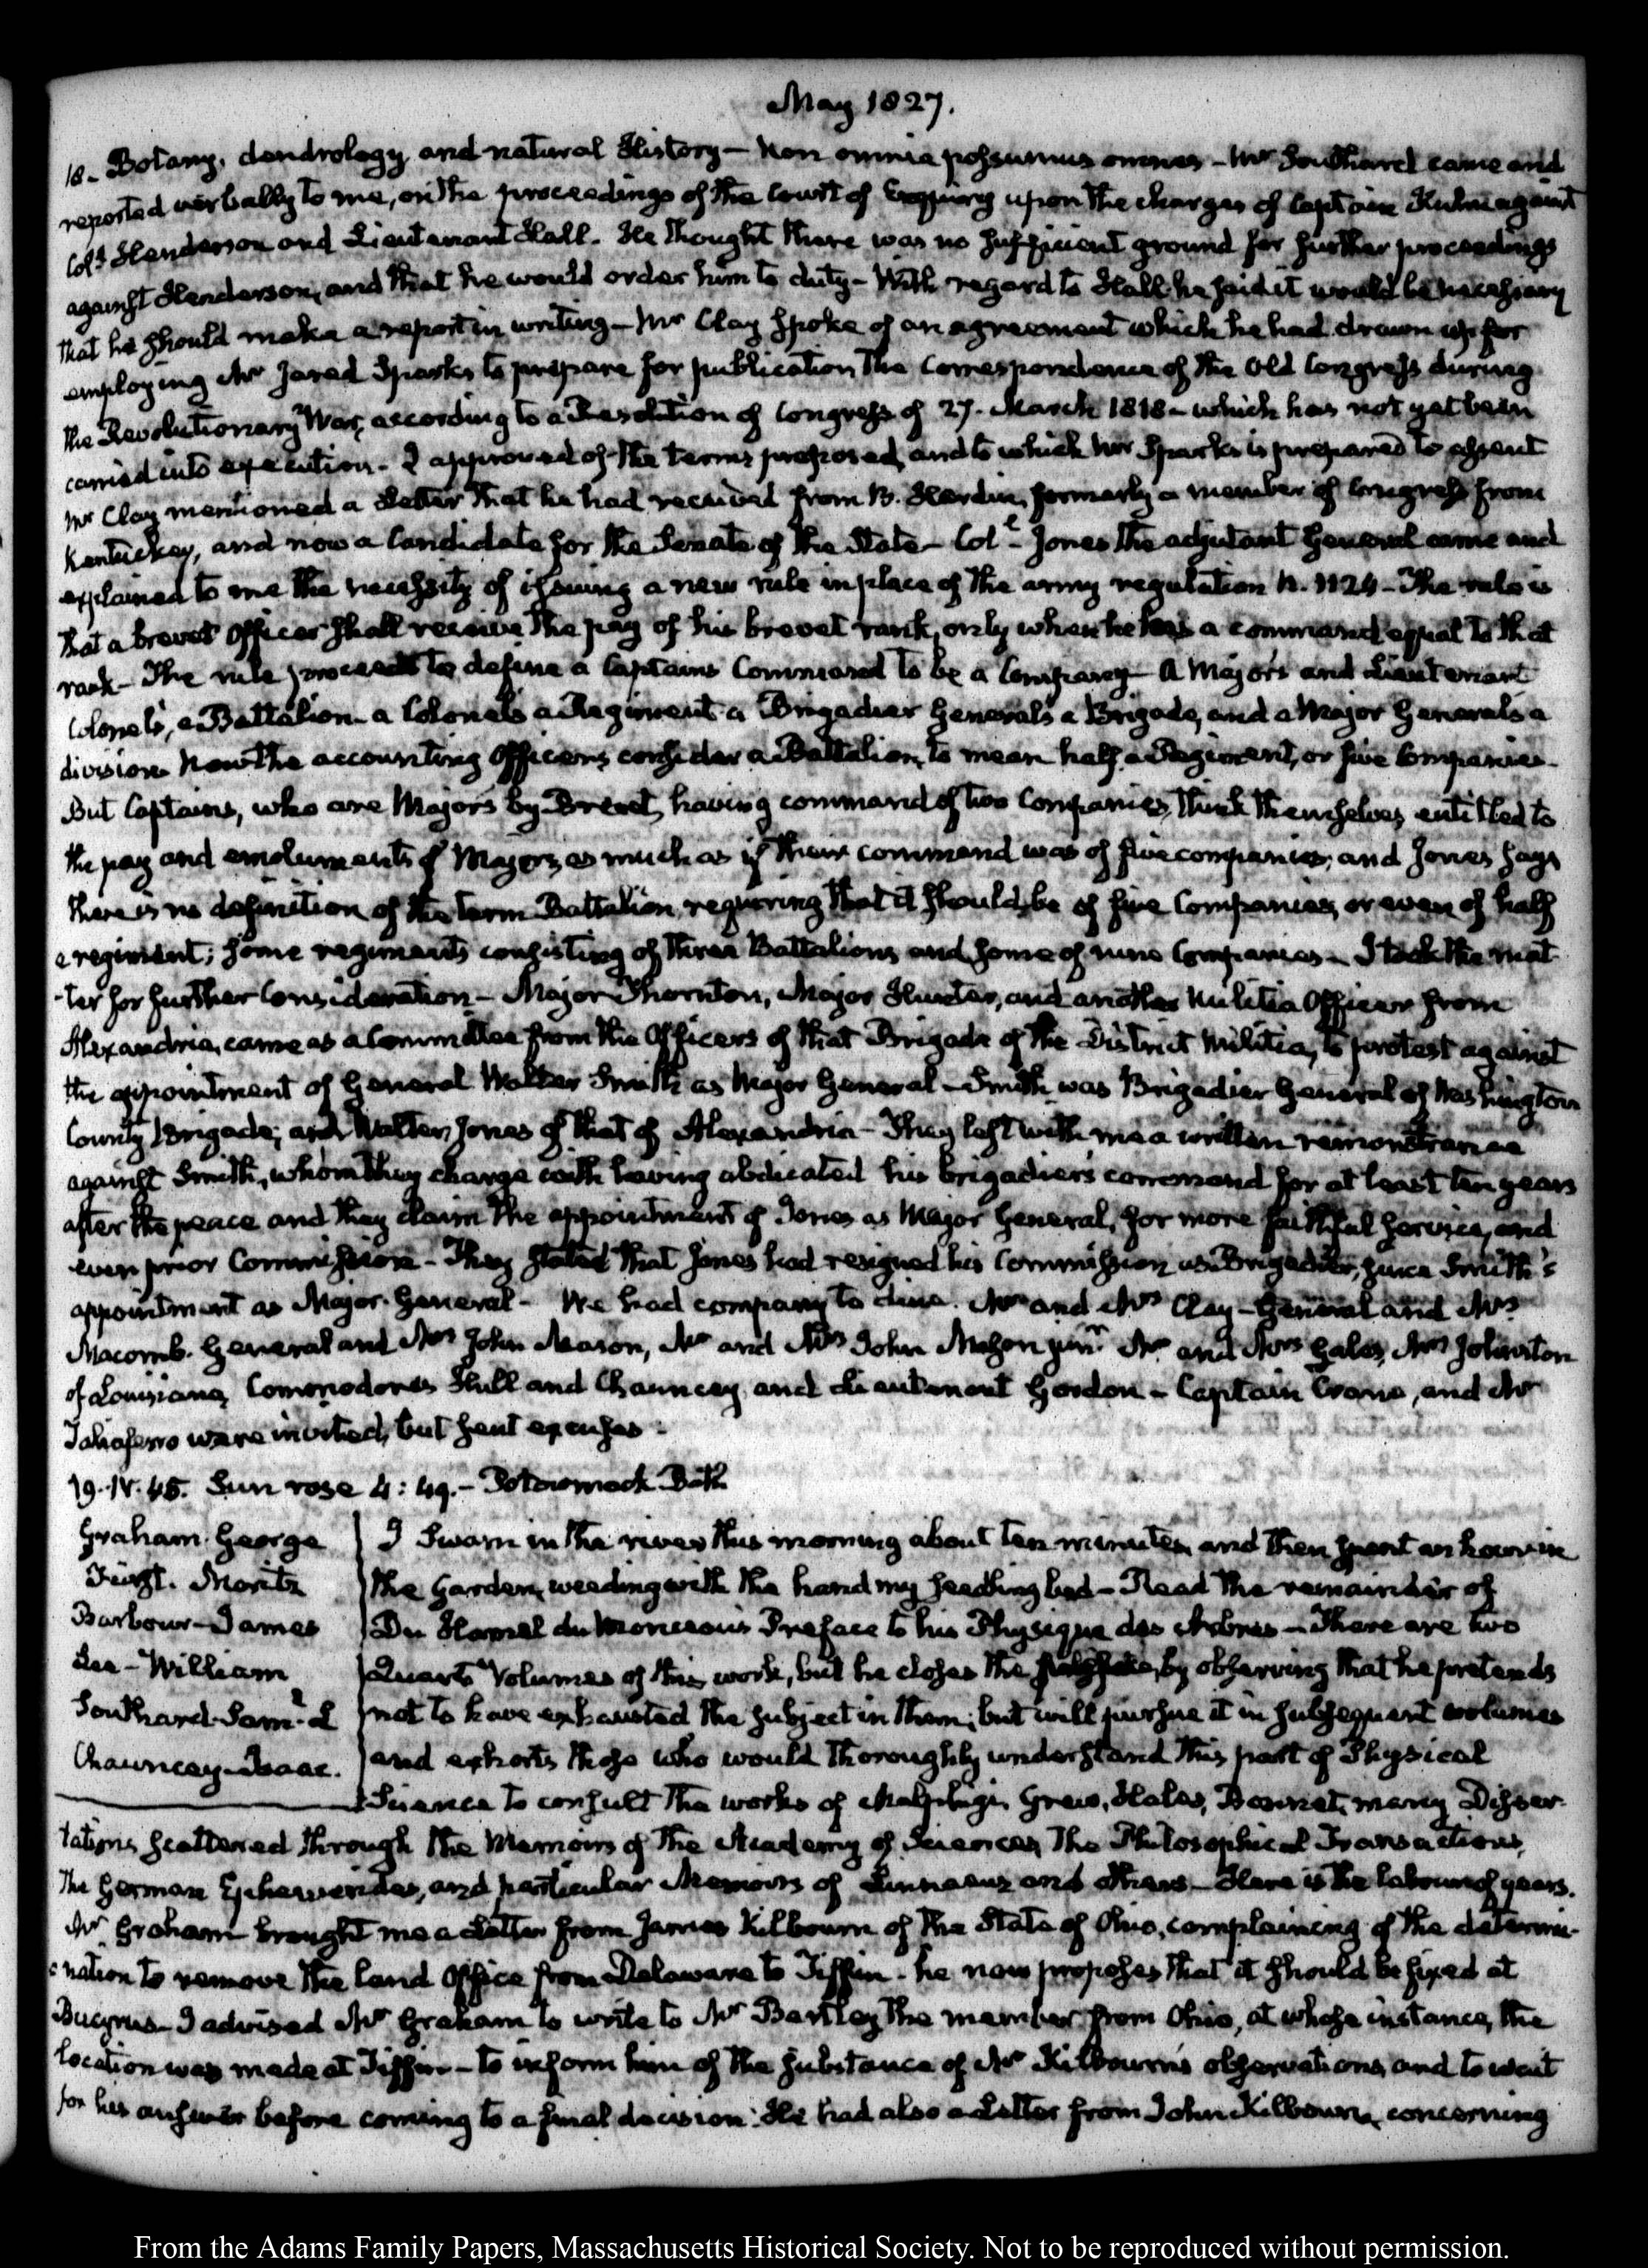 May 1827.
18- Botany, dendrology and natural History - Non omnia possumus omnes - Mr Southard came and
reported verbally to me, on the proceedings of the Court of Enquiry upon the charges of Captain Kuhn against
Colt. Henderson and Lieutenant Hall. He thought there was no sufficient ground for further proceedings
against Henderson, and that he would order him to duty - With regard to Hall he said it would be necessary
that he should make a report in writing - Mr Clay spoke of an agreement which he had drawn up for
employing Mr Jared Sparks to prepare for publication the Correspondence of the Old Congress during
the Revolutionary War, according to a Resolution of Congress of 27. March 1818 - which has not yet been
carried into execution. I approved of the terms proposed, and to which Mr Sparks is prepared to assent
Mr Clay mentioned a Letter that he had received from B. Hardin, formerly a member of Congress from
Kentuckey, and now a Candidate for the Senate of the State - Coll. Jones the adjutant General came and
explained to me the necessity of issuing a new rule in place of the army regulation N. 1124 - The rule is
that a brevet Officer shall receive the pay of his brevet rank, only when he has a command equal to that
rank - The rule proceeds to define a Captains Command to be a Company - A Major's and Lieutenant
Colonel's, a Battalion - a Colonel's a Regiment - a Brigadier General's a Brigade, and a Major General's a
division. Now the accounting Officers consider a Battalion, to mean half a Regiment, or five Companies -
But Captains, who are Majors by Brevet, having command of two Companies, think themselves entitled to
the pay and emoluments of Majors, as much as if their command was of five companies; and Jones says
there is no definition of the term Battalion requiring that it should be of five Companies, or even of half
a regiment; some regiments consisting of three Battalions and some of nine Companies - I took the mat-
-ter for further Consideration - Major Thornton, Major Hunter, and another Militia Officer from
Alexandria, came as a Committee from the Officers of that Brigade of the District Militia, to protest against
the appointment of General Walter Smith as Major General - Smith was Brigadier General of Washington
County Brigade; and Walter Jones of that of Alexandria - They left with me a written remonstrance
against Smith, whom they charge with having abdicated his brigadier's command for at least ten years
after the peace and they claim the appointment of Jones as Major General, for more faithful service, and
even prior Commission - They stated that Jones had resigned his Commission as Brigadier, since Smith's
appointment as Major-General - We had company to dine. Mr and Mrs Clay - General and Mrs
Macomb. General and Mrs John Mason, Mr and Mrs John Mason junr. Mr and Mrs Gales, Mrs Johnston
of Louisiana, Commodores Hull and Chauncey, and Lieutenant Gordon - Captain Crane, and Mr
Taliaferro were invited, but sent excuses.
19. IV. 45. Sun rose 4:49. - Potowmack Bath
Graham. George
Fürst. Moritz
Barbour - James
Lee - William
Southard. Saml. L
Chauncey - Isaac.
I swam in the river this morning about ten minutes, and then spent an hour in
the Garden, weeding with the hand my seedling bed - Read the remainder of
Du Hamel du Monceau's Preface to his Physique des Arbres - There are two
Quarto Volumes of this work, but he closes the by observing that he pretends
not to have exhausted the subject in them; but will pursue it in subsequent volumes
and exhorts those who would thoroughly understand this part of Physical
Science to consult the works of Malpighi, Grew, Hales, Bonnet, many Disser-
tations scattered through the Memoirs of the Academy of Sciences, The Philosophical Transactions,
The German Ephemerides, and particular Memoirs of Linnaeus and others - Here is the labour of years.
Mr Graham brought me a Letter from James Kilbourn of the State of Ohio, complaining of the determi-
-nation to remove the Land Office from Delaware to Tiffin - he now proposes that it should be fixed at
Bucyrus - I advised Mr Graham to write to Mr Bartley the member from Ohio, at whose instance, the
location was made at Tiffin - to inform him of the substance of Mr Kilbourn's observations, and to wait
for his answer before coming to a final decision. He had also a Letter from John Kilbourn, concerning
From the Adams Family Papers, Massachusetts Historical Society. Not to be reproduced without permission.